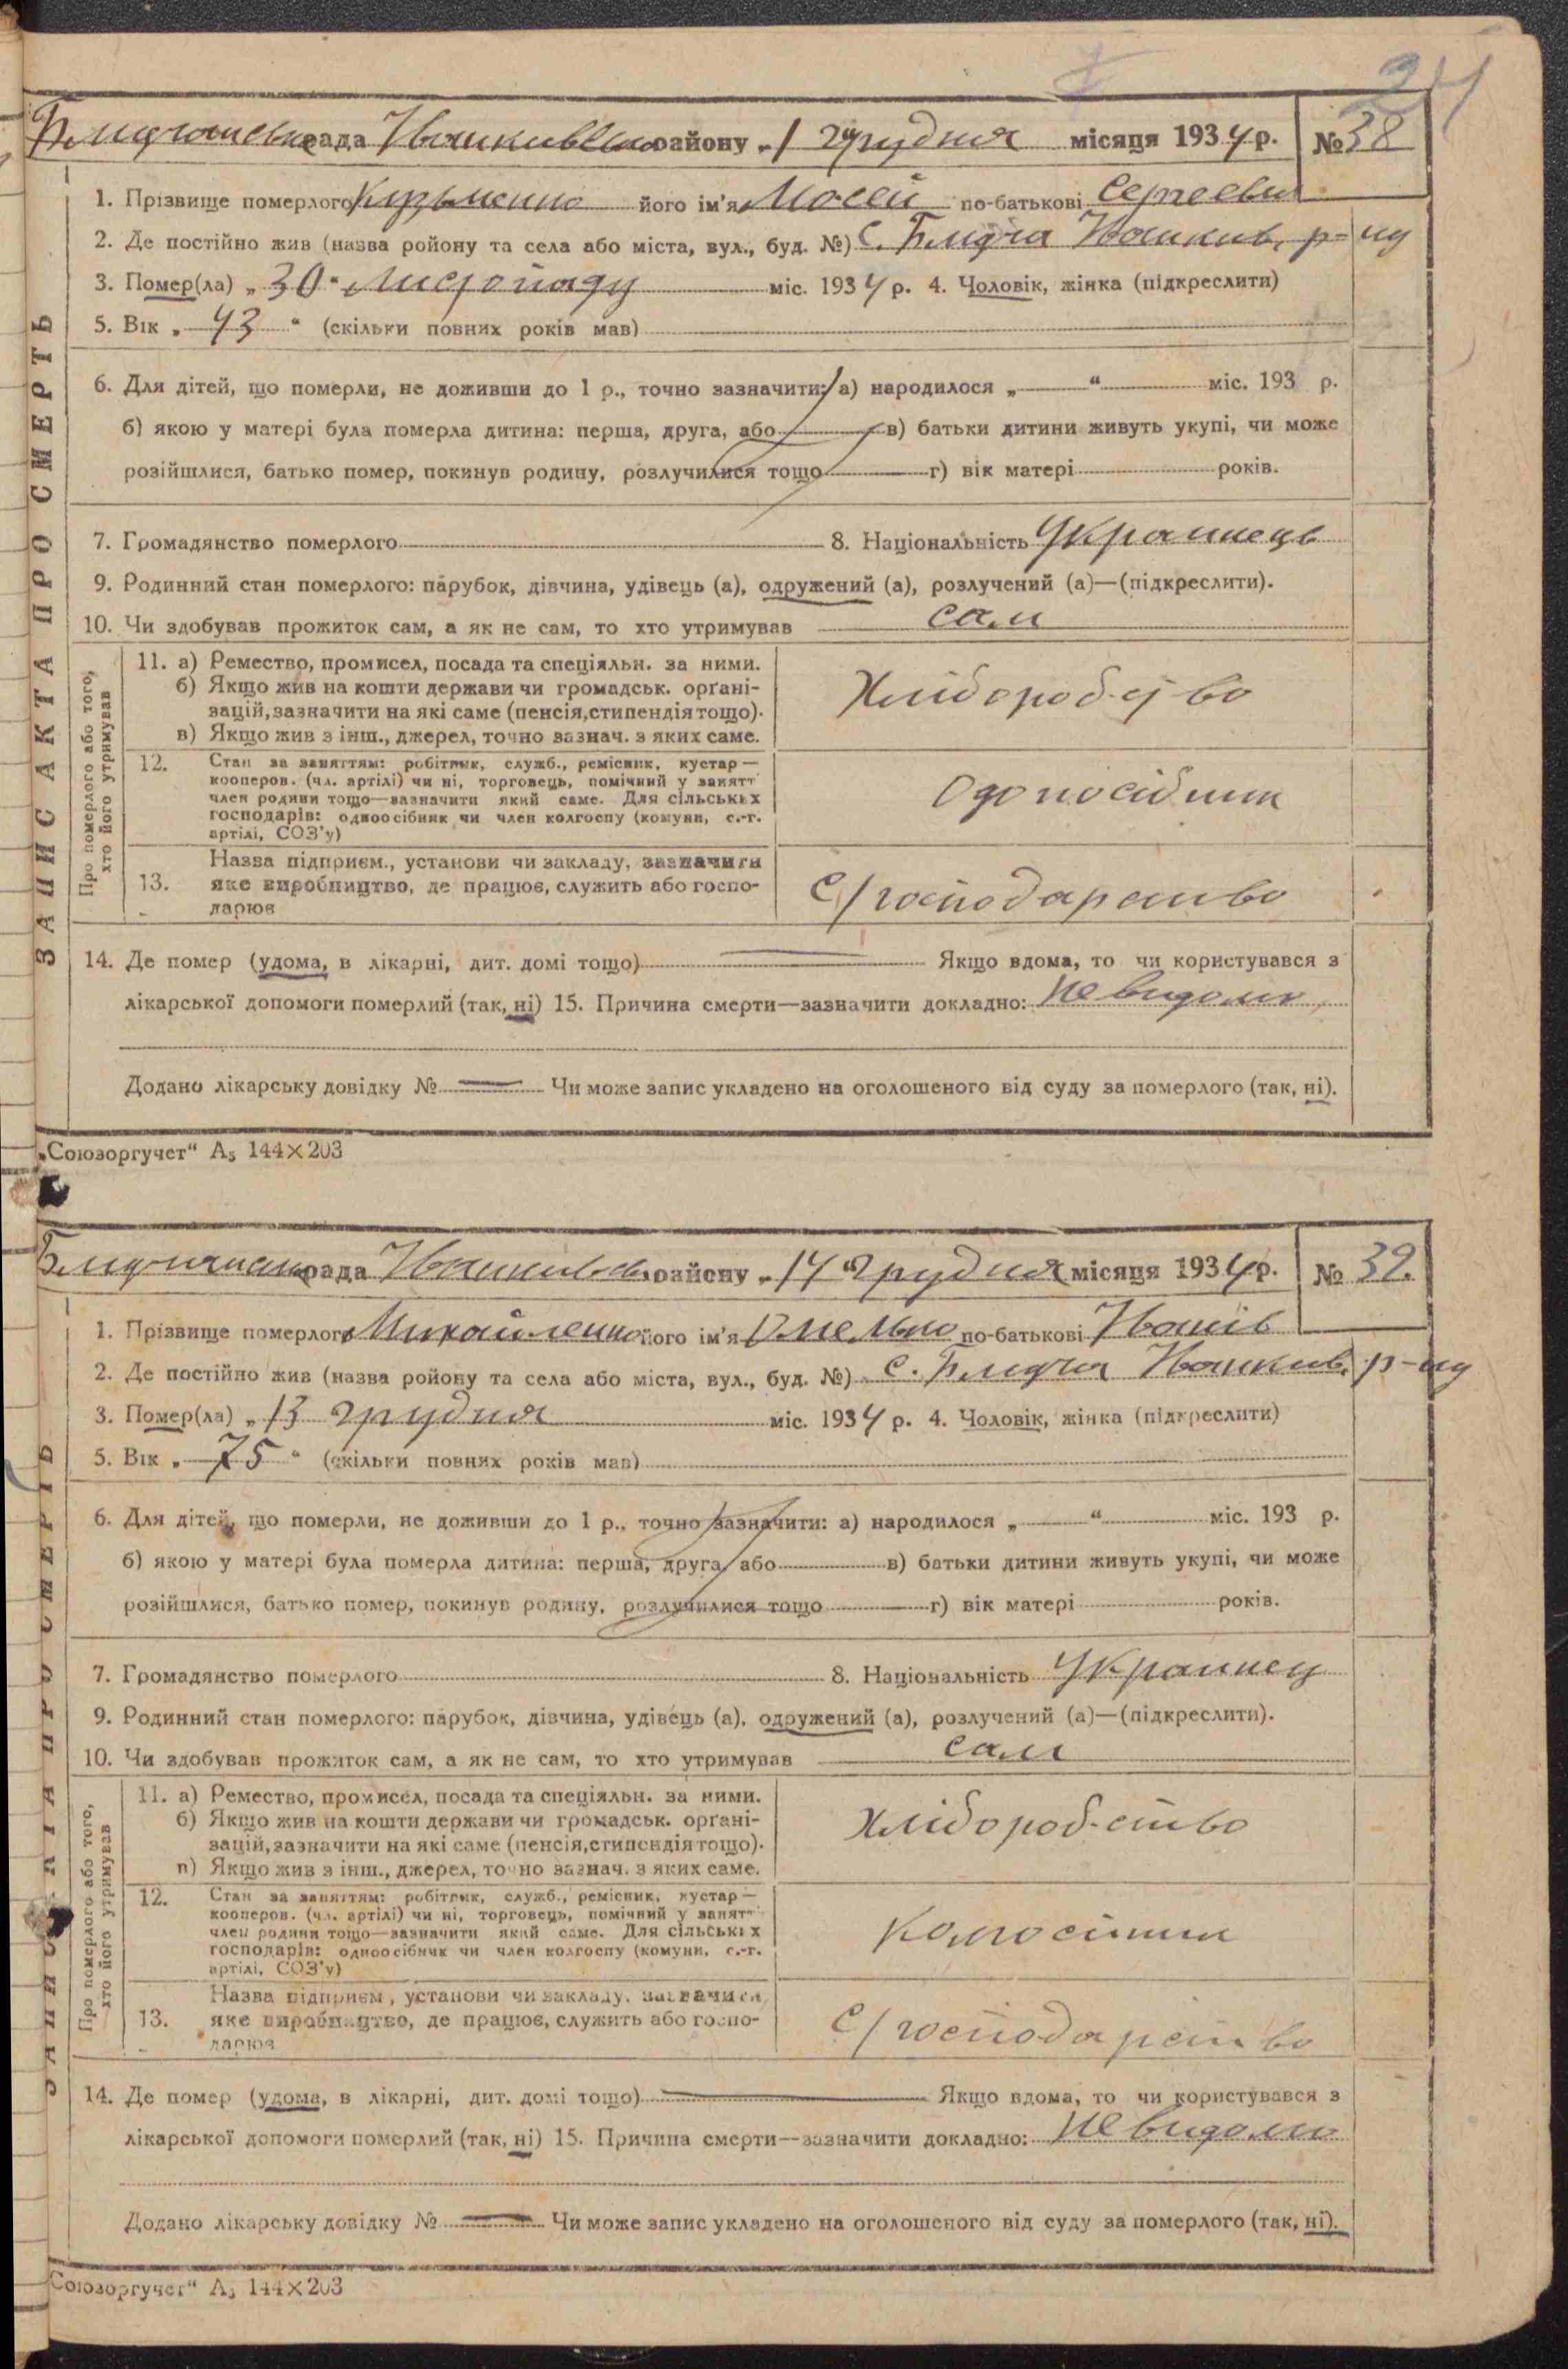 34
Блидчанська рада Іванківського району „1“ грудня місяця 1934 р. № 38
1. Прізвище померлого Кузьменко його ім'я Мосей по-батькові Сергеевич
2. Де постійно жив (назва ройону та села або міста, вул., буд. №) с. Блидча Іванків. р-ну
3. Помер(ла) „30“ листопаду міс. 1934 р. 4. Чоловік, жінка (підкреслити)
5. Вік „43“ (скільки повних років мав)
6. Для дітей, що померли, не доживши до 1 р., точно зазначити: а) народилося „ “ міс. 193 р.
б) якою у матері була померла дитина: перша, друга, або в) батьки дитини живуть укупі, чи може
розійшлися, батько помер, покинув родину, розлучилися тощо г) вік матері років.
7. Громадянство померлого 8. Національність Українець
9. Родинний стан померлого: парубок, дівчина, удівець (а), одружений (а), розлучений (а)—(підкреслити).
10. Чи здобував прожиток сам, а як не сам, то хто утримував сам
ЗАПИС АКТА ПРО СМЕРТЬ
Про померлого або того,
хто його утримував
11. а) Ремество, промисел, посада та спеціяльн. за ними.
б) Якщо жив на кошти держави чи громадськ. орґані-
зацій, зазначити на які саме (пенсія, стипендія тощо).
в) Якщо жив з інш., джерел, точно зазнач. з яких саме.
Хліборобство
12. Стан за заняттям: робітник, служб., ремісник, кустар—
кооперов. (чл. артілі) чи ні, торговець, помічний у занятт
член родини тощо—зазначити який саме. Для сільських
господарів: одноосібник чи член колгоспу (комуни, с.-г.
артілі, СОЗ'у)
Одоносібник
13. Назва підприєм., установи чи закладу, зазначити
яке виробництво, де працює, служить або госпо-
дарює
С/господарство
14. Де помер (удома, в лікарні, дит. домі тощо) Якщо вдома, то чи користувався з
лікарської допомоги померлий (так, ні) 15. Причина смерти—зазначити докладно: не видомо
Додано лікарську довідку № — Чи може запис укладено на оголошеного від суду за померлого (так, ні).
„Союзоргучет“ А₅ 144×203
Блидчанська рада Іванківськ. району „14“ грудня місяця 1934 р. № 39.
1. Прізвище померлого Михайленко його ім'я Омелько по-батькові Іванів
2. Де постійно жив (назва ройону та села або міста, вул., буд. №) с. Блидча Іванків. р-ну
3. Помер(ла) „13 грудня міс. 1934 р. 4. Чоловік, жінка (підкреслити)
5. Вік „75“ (скільки повних років мав)
6. Для дітей, що померли, не доживши до 1 р., точно зазначити: а) народилося „ “ міс. 193 р.
б) якою у матері була померла дитина: перша, друга, або в) батьки дитини живуть укупі, чи може
розійшлися, батько помер, покинув родину, розлучилися тощо г) вік матері років.
7. Громадянство померлого 8. Національність Українец
9. Родинний стан померлого: парубок, дівчина, удівець (а), одружений (а), розлучений (а)—(підкреслити).
10. Чи здобував прожиток сам, а як не сам, то хто утримував сам
ЗАПИС АКТА ПРО СМЕРТЬ
Про померлого або того,
хто його утримував
11. а) Ремество, промисел, посада та спеціяльн. за ними.
б) Якщо жив на кошти держави чи громадськ. орґані-
зацій, зазначити на які саме (пенсія, стипендія тощо).
в) Якщо жив з інш., джерел, точно зазнач. з яких саме.
Хліборобство
12. Стан за заняттям: робітник, служб., ремісник, кустар—
кооперов. (чл. артілі) чи ні, торговець, помічний у занятт
член родини тощо—зазначити який саме. Для сільських
господарів: одноосібник чи член колгоспу (комуни, с.-г.
артілі, СОЗ'у)
13. Назва підприєм., установи чи закладу, зазначити
яке виробництво, де працює, служить або госпо-
дарює
С/господарство
14. Де помер (удома, в лікарні, дит. домі тощо) Якщо вдома, то чи користувався з
лікарської допомоги померлий (так, ні) 15. Причина смерти—зазначити докладно: не видомо
Додано лікарську довідку № — Чи може запис укладено на оголошеного від суду за померлого (так, ні).
„Союзоргучет“ А₅ 144×203